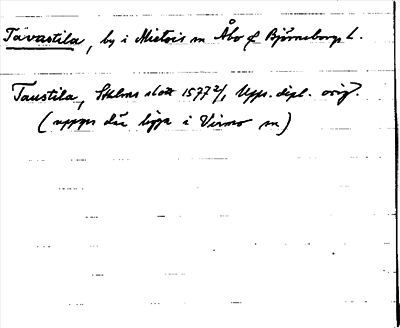 Tavastila, by i Mietois sn Åbo & Björneborgs l.
Taustila, Sthlms slott 1577 2/1, Upps. dipl. orig.
(uppges där ligga i Virmo sn)